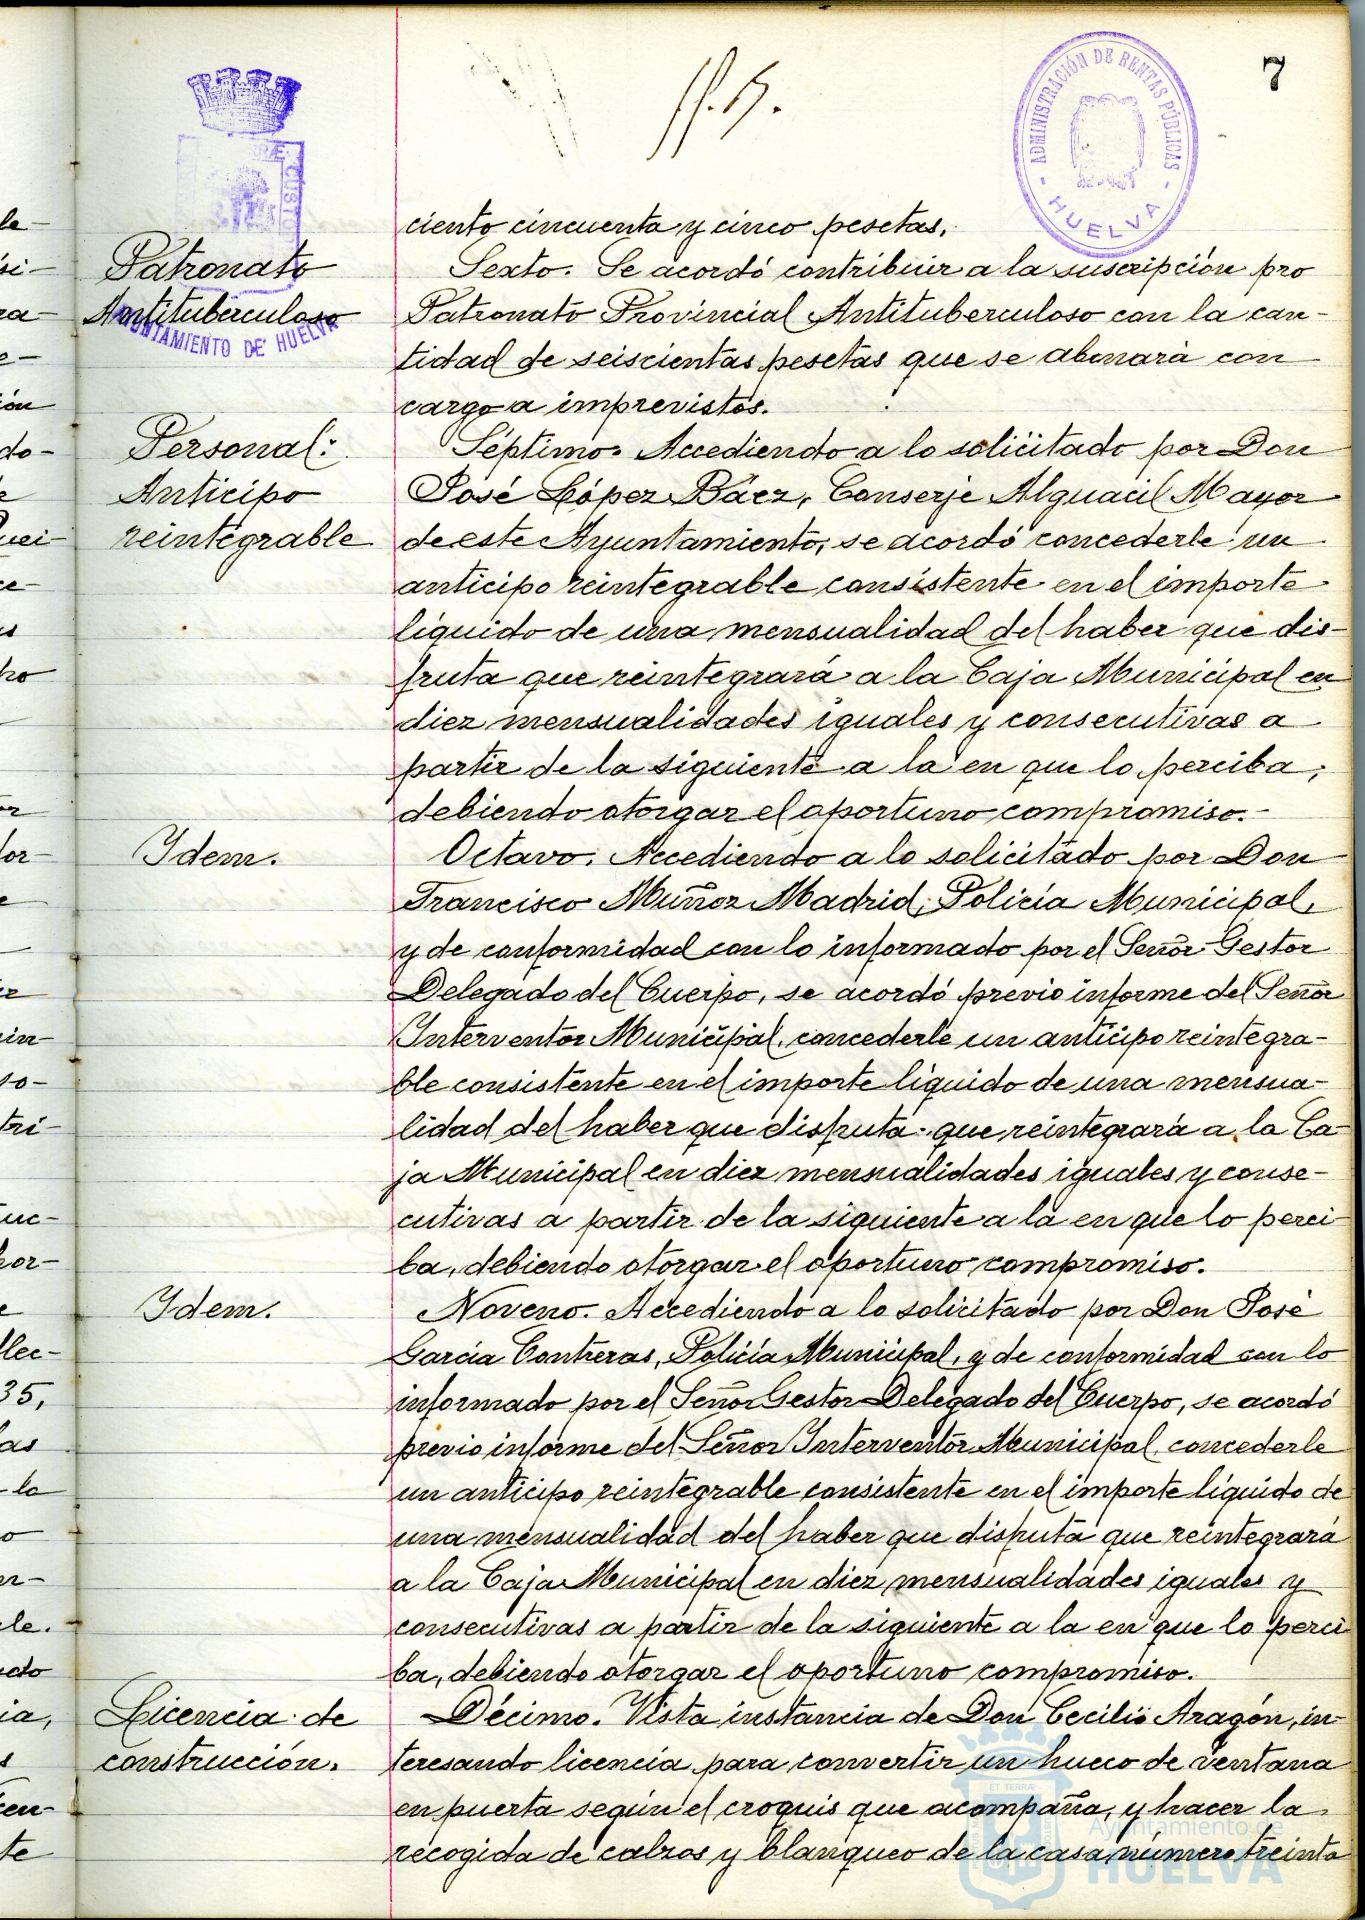 7
ADMINISTRACIÓN DE RENTAS PÚBLICAS
- HUELVA -
AYUNTAMIENTO DE HUELVA
ciento cincuenta y cinco pesetas.
Patronato
Antituberculoso
Sexto. Se acordó contribuir a la suscripción pro
Patronato Provincial Antituberculoso con la can-
tidad de seiscientas pesetas que se abonará con
cargo a imprevistos.
Personal:
Anticipo
reintegrable
Séptimo. Accediendo a lo solicitado por Don
José López Báez, Conserje Alguacil Mayor
de este Ayuntamiento, se acordó concederle un
anticipo reintegrable consistente en el importe
líquido de una mensualidad del haber que dis-
fruta que reintegrará a la Caja Municipal en
diez mensualidades iguales y consecutivas a
partir de la siguiente a la en que lo perciba,
debiendo otorgar el oportuno compromiso.-
Ydem.
Octavo. Accediendo a lo solicitado por Don
Francisco Muñoz Madrid, Policía Municipal,
y de conformidad con lo informado por el Señor Gestor
Delegado del Cuerpo, se acordó previo informe del Señor
Ynterventor Municipal, concederle un anticipo reintegra-
ble consistente en el importe líquido de una mensua-
lidad del haber que disfruta que reintegrará a la Ca-
ja Municipal en diez mensualidades iguales y conse-
cutivas a partir de la siguiente a la en que lo perci-
ba, debiendo otorgar el oportuno compromiso.
Ydem.
Noveno. Accediendo a lo solicitado por Don José
García Contreras, Policía Municipal, y de conformidad con lo
informado por el Señor Gestor Delegado del Cuerpo, se acordó
previo informe del Señor Ynterventor Municipal, concederle
un anticipo reintegrable consistente en el importe líquido de
una mensualidad del haber que disfruta que reintegrará
a la Caja Municipal en diez mensualidades iguales y
consecutivas a partir de la siguiente a la en que lo perci
ba, debiendo otorgar el oportuno compromiso.
Licencia de
construcción.
Décimo. Vista instancia de Don Cecilio Aragón, in-
teresando licencia para convertir un hueco de ventana
en puerta según el croquis que acompaña, y hacer la
recogida de calzos y blanqueo de la casa número treinta
Ayuntamiento de
HUELVA